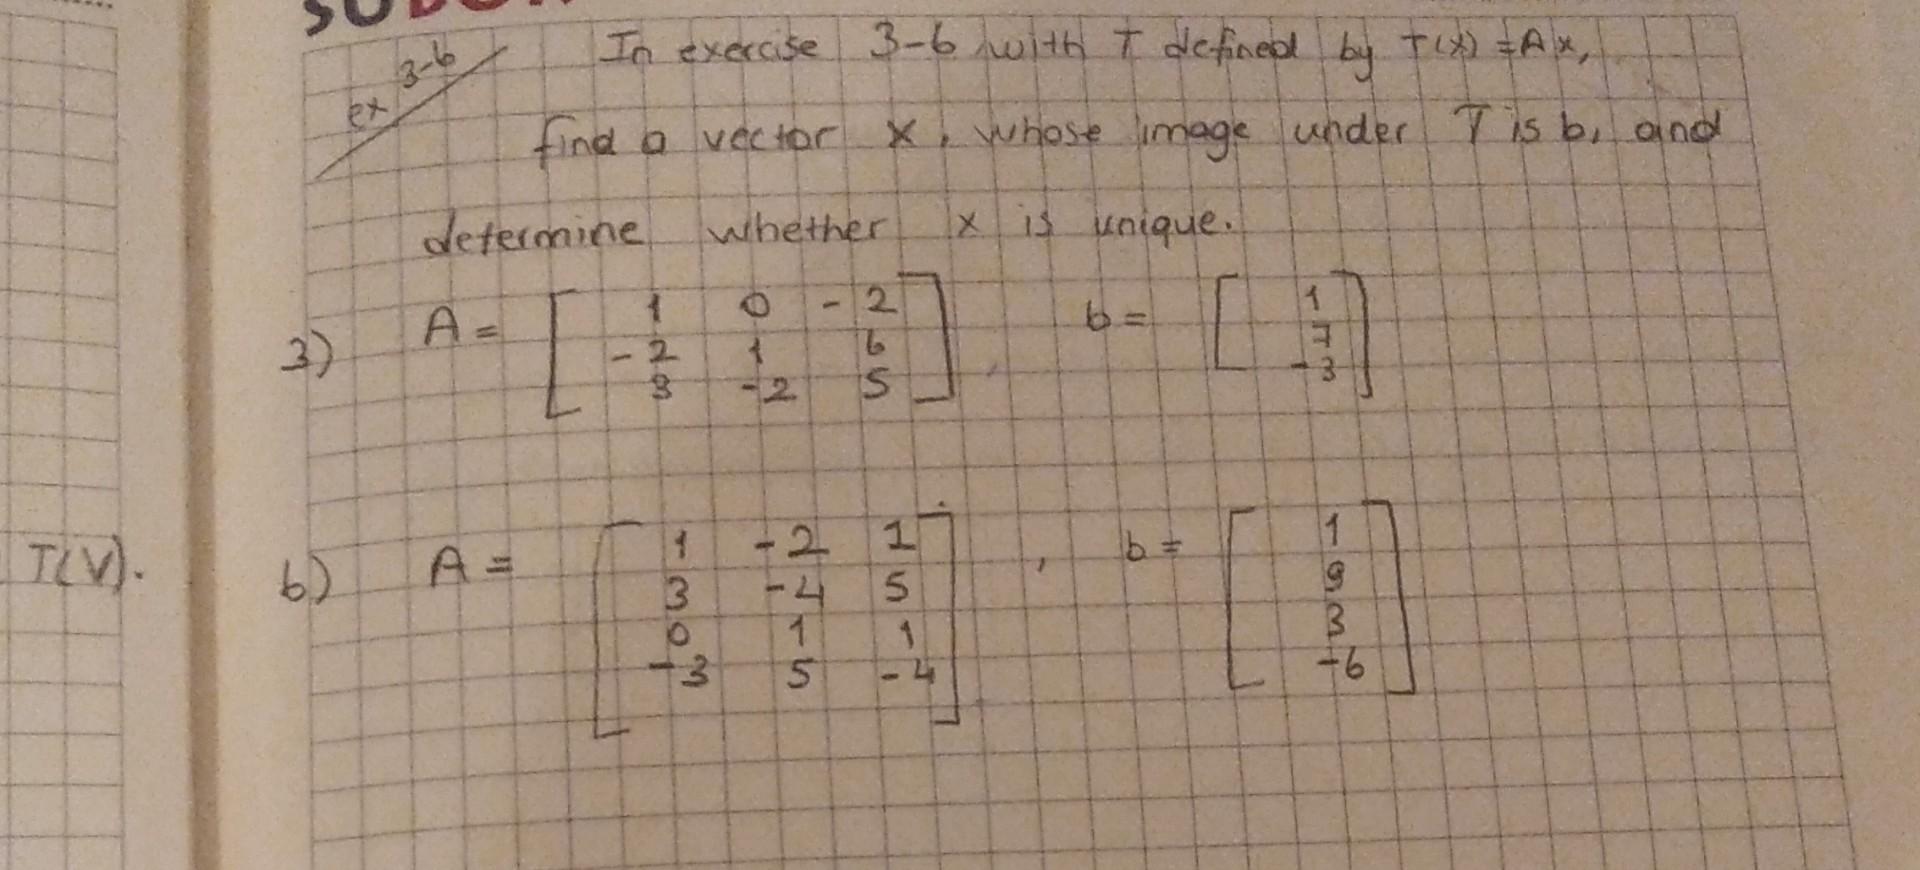 ex 3-6
In exercise 3-6 with T defined by T(x) = Ax,
find a vector x, whose image under T is b, and
determine whether x is unique.
3) A = [ 1 0 -2 b = [ 1
-2 1 6 7
3 -2 5 ], -3 ]
T(V).
6) A = [ 1 -2 1 , b = [ 1
3 -4 5 9
0 1 1 3
-3 5 -4 ] -6 ]